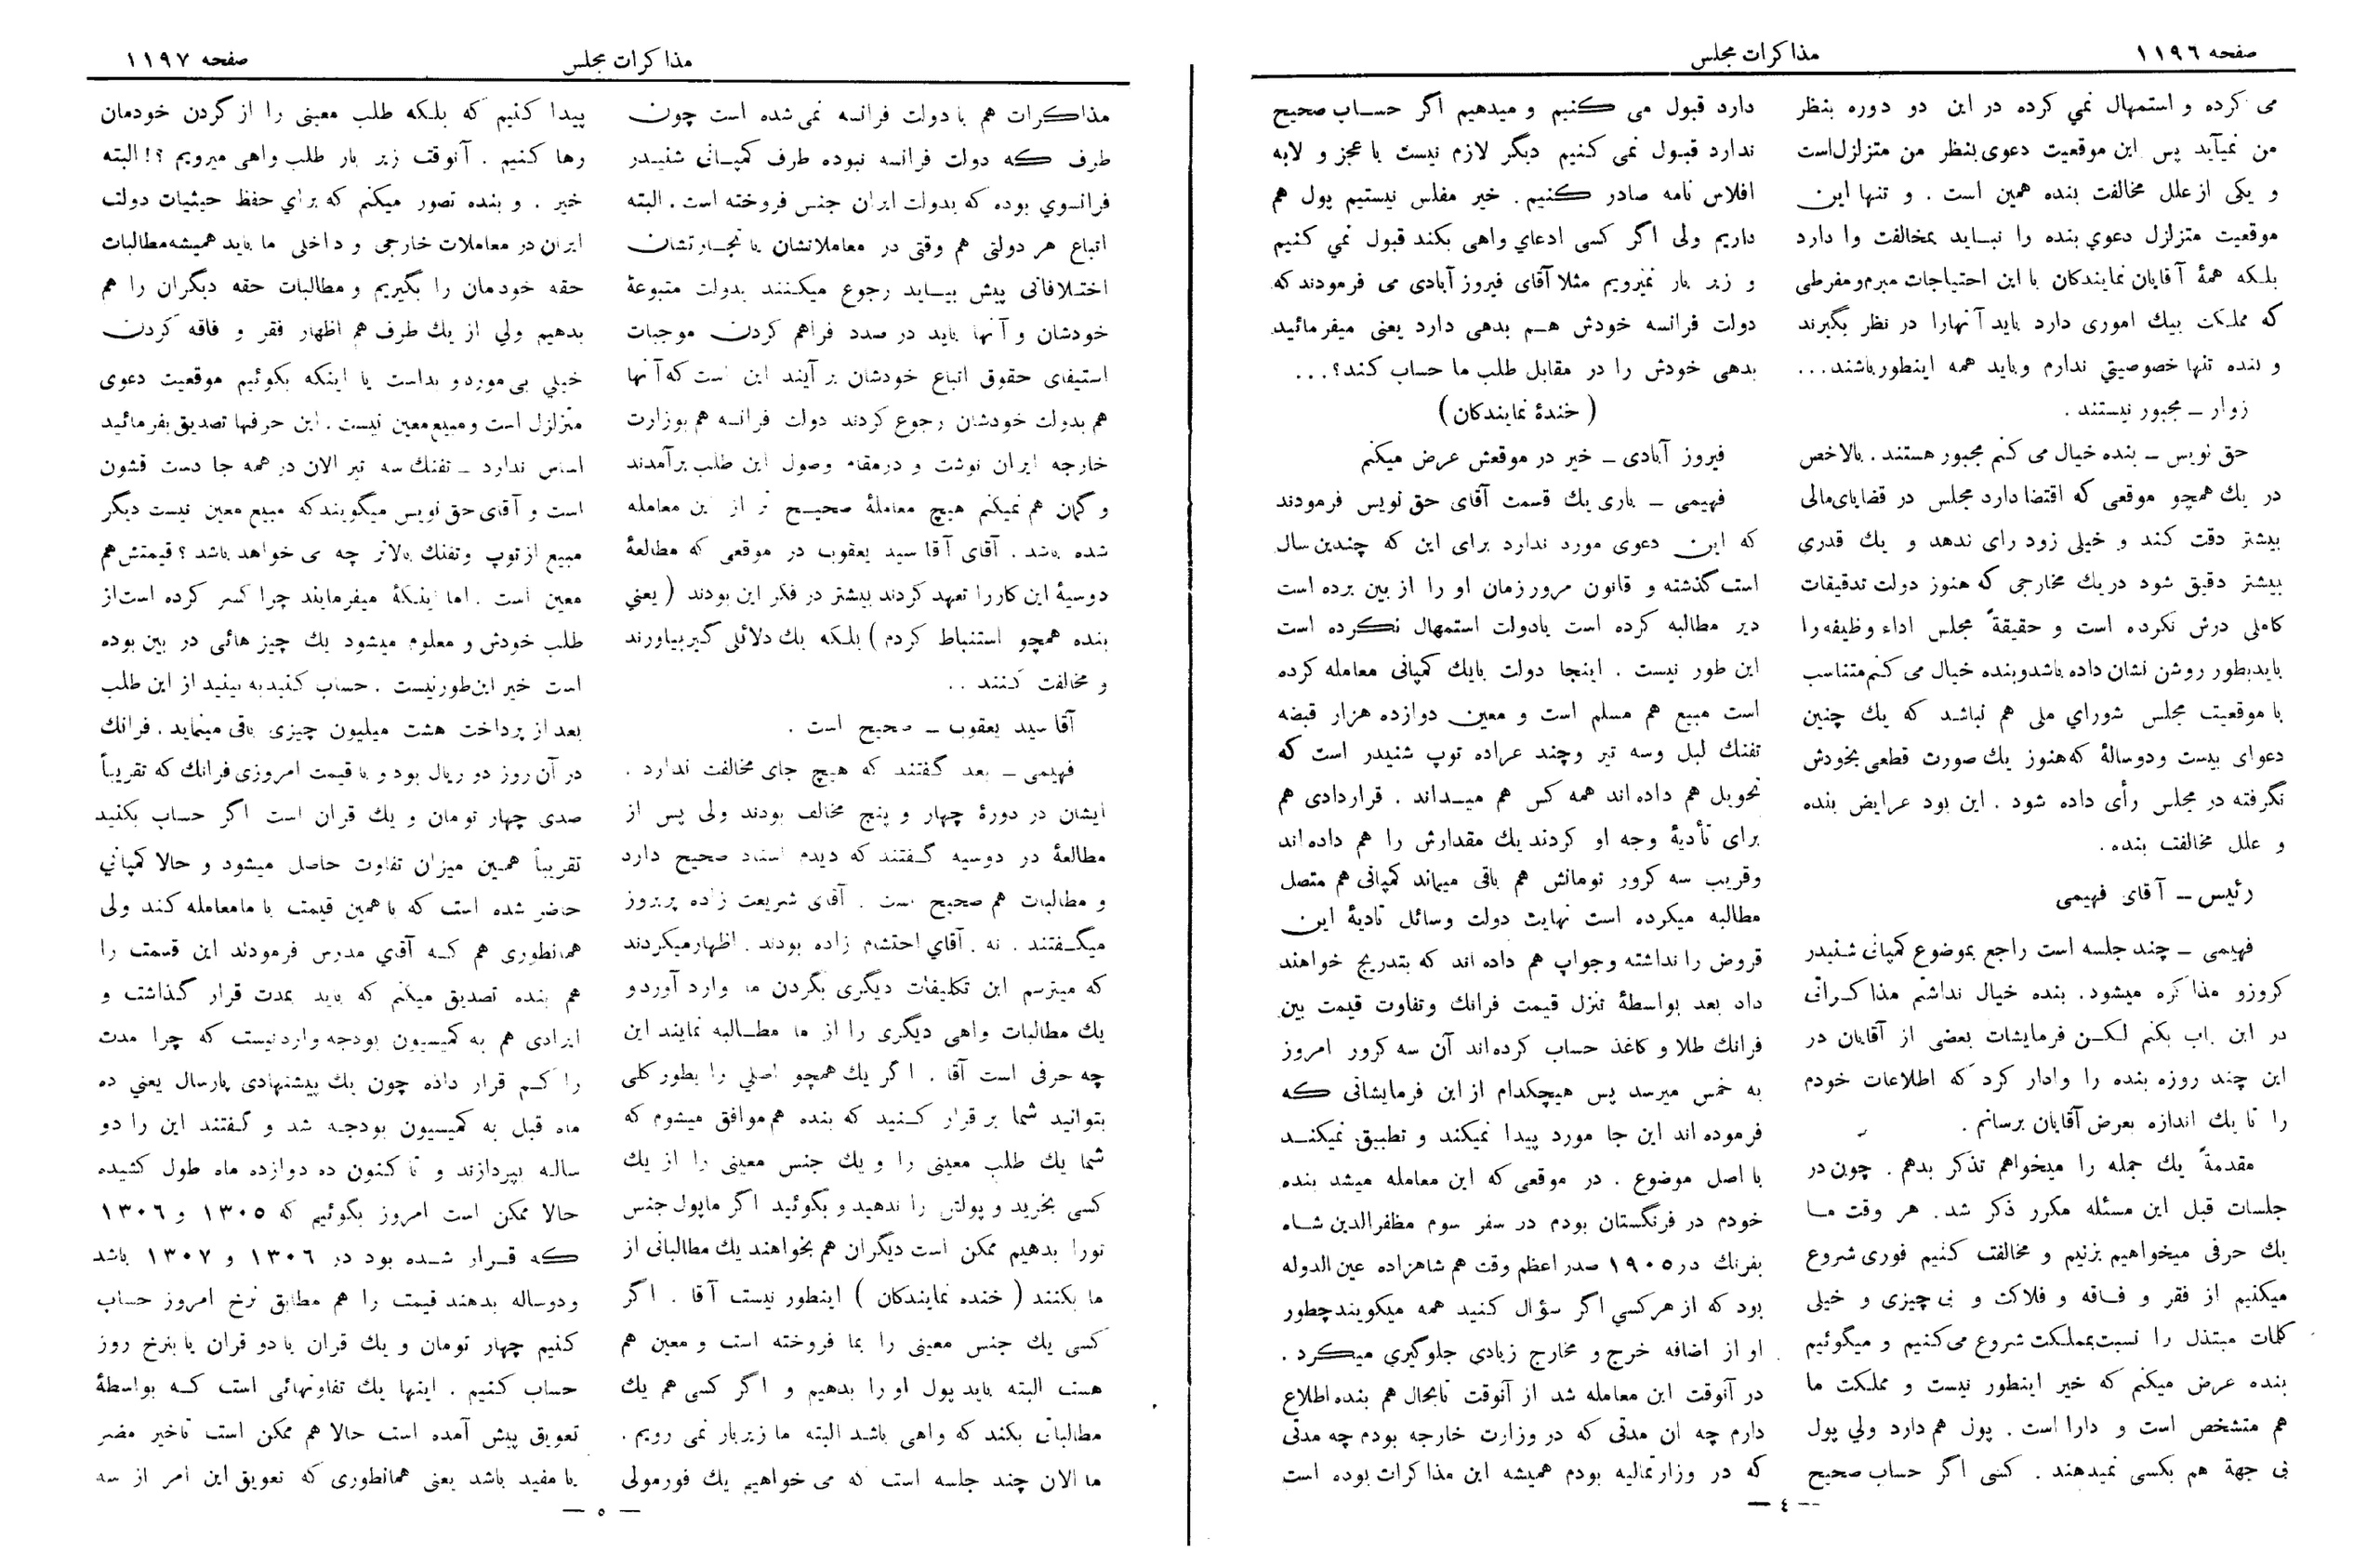 صفحه ١١٩٦
مذاکرات مجلس
می کرده و استمهال نمي کرده در این دو دوره بنظر
من نمیآید پس این موقعیت دعوی بنظر من متزلزل است
و یکی از علل مخالفت بنده همین است . و تنها این
موقعیت متزلزل دعوي بنده را نبـاید بمخالفت وا دارد
بلـکه همهٔ آقایان نمایندکان با این احتیاجات مبرم و مفرطی
که مملکت بیك اموری دارد باید آنهارا در نظر بگیرند
و بنده تنها خصوصیتي ندارم و باید همه اینطور باشند...
زوار ـ مجبور نیستند .
حق نویس ـ بنده خیال می کنم مجبور هستند . بالاخص
در یك همچو موقعی که اقتضا دارد مجلس در قضایای مالی
بیشتر دقت کند و خیلی زود رای ندهد و یك قدري
بیشتر دقیق شود در یك مخارجی که هنوز دولت تدقیقات
کاملی درش نکرده است و حقیقةً مجلس اداء وظیفه را
باید بطور روشن نشان داده باشد و بنده خیال می کنم متناسب
با موقعیت مجلس شوراي ملی هم نباشد که یك چنین
دعوای بیست و دو سالهٔ که هنوز یك صورت قطعی بخودش
نگرفته در مجلس رأی داده شود . این بود عرایض بنده
و علل مخالفت بنده .
رئیس ـ آقای فهیمی
فهیمی ـ چند جلسه است راجع بموضوع کمپانی شنیدر
کروزو مذاکره میشود. بنده خیال نداشتم مذاکـراتی
در این باب بکنم لکـن فرمایشات بعضی از آقایان در
این چند روزه بنده را وادار کرد که اطلاعات خودم
را تا یك اندازه بعرض آقایان برسانم .
مقدمةً یك جمله را میخواهم تذکر بدهم . چون در
جلسات قبل این مسئله مکرر ذکر شد. هر وقت مـا
یك حرفی میخواهیم بزنیم و مخالفت کنیم فوری شروع
میکنیم از فقر و فـاقه و فلاکت و بی چیزی و خیلی
کلمات مبتذل را نسبت بمملـکت شروع می کنیم و میگوئیم
بنده عرض میکنم که خیر اینطور نیست و مملکت ما
هم متشخص است و دارا است . پول هم دارد ولي پول
بی جهة هم بکسی نمیدهند . کسی اگر حساب صحیح
دارد قبول می کنیم و میدهیم اگر حسـاب صحیح
ندارد قبـول نمی کنیم دیگر لازم نیست با عجز و لابه
افلاس نامه صادر کنیم. خیر مفلس نیستیم پول هم
داریم ولی اگر کسی ادعاي واهی بکند قبول نمي کنیم
و زیر بار نمیرویم مثلا آقای فیروز آبادی می فرمودند که
دولت فرانسه خودش هـم بدهی دارد یعنی میفرمائید
بدهی خودش را در مقابل طلب ما حساب کند؟...
( خندهٔ نمایندکان )
فیروز آبادی ـ خیر در موقعش عرض میکنم
فهیمی ـ باری یك قسمت آقای حق نویس فرمودند
که این دعوی مورد ندارد برای این که چندین سال
است گذشته و قانون مرور زمان او را از بین برده است
دیر مطالبه کرده است یا دولت استمهال نکرده است
این طور نیست . اینجا دولت با یك کمپانی معامله کرده
است مبیع هم مسلم است و معین دوازده هزار قبضه
تفنك لبل وسه تیر وچند عراده توپ شنیدر است که
تحویل هم داده اند همه کس هم میـداند . قراردادی هم
برای تأدیهٔ وجه او کردند یك مقدارش را هم داده اند
وقریب سه کرور تومانش هم باقی میماند کمپانی هم متصل
مطالبه میکرده است نهایت دولت وسائل تادیهٔ این
قروض را نداشته وجواب هم داده اند که بتدریج خواهند
داد بعد بواسطهٔ تنزل قیمت فرانك وتفاوت قیمت بین
فرانك طلا و کاغذ حساب کرده اند آن سه کرور امروز
به خمس میرسد پس هیچکدام از این فرمایشاتی که
فرموده اند این جا مورد پیدا نمیکند و تطبیق نمیکنـد
با اصل موضوع . در موقعی که این معامله میشد بنده
خودم در فرنگستان بودم در سفر سوم مظفرالدین شـاه
بفرنك در ١٩٠٥ صدر اعظم وقت هم شاهزاده عین الدوله
بود که از هر کسي اگر سؤال کنید همه میکویند چطور
او از اضافه خرج و مخارج زیادی جلوگیري میکرد .
در آنوقت این معامله شد از آنوقت تابحال هم بنده اطلاع
دارم چه ان مدتی که در وزارت خارجه بودم چه مدتی
که در وزارتمالیه بودم همیشه این مذاکرات بوده است
ـ ٤ ـ
صفحه ١١٩٧
مذاکرات مجلس
مذاکرات هم با دولت فرانسه نمی شده است چون
طرف که دولت فرانسه نبوده طرف کمپـانی شنیـدر
فرانسوي بوده که بدولت ایران جنس فروخته است . البته
اتباع هر دولتی هم وقتی در معاملاتشان با تجـارتشان
اختلافاتی پیش بیـاید رجوع میکـنند بدولت متبوعهٔ
خودشان و آنها باید در صدد فراهم کردن موجبات
استیفای حقوق اتباع خودشان بر آیند این است که آنها
هم بدولت خودشان رجوع کردند دولت فرانسه هم بوزارت
خارجه ایران نوشت و در مقام وصول این طلب برآمدند
و گمان هم نمیکنم هیچ معاملهٔ صحیـح تر از این معامله
شده باشد . آقای آقا سید یعقوب در موقعی که مطالعهٔ
دوسیهٔ این کار را تعهد کردند بیشتر در فکر این بودند ( یعني
بنده همچو استنباط کردم ) بلکه یك دلائلی گیر بیاورند
و مخالفت کنند ..
آقا سید یعقوب ـ صحیح است .
فهیمی ـ بعد گفتند که هیچ جای مخالفت ندارد .
ایشان در دورهٔ چهار و پنج مخالف بودند ولی پس از
مطالعهٔ در دوسیه گـفتند که دیدم اسناد صحیح دارد
و مطالبات هم صحیح است . آقای شریعت زاده پریروز
میگـفتند . نه . آقاي احتشام زاده بودند . اظهار میکردند
که میترسم این تکلیفات دیگری بگردن ما وارد آورد و
یك مطالبات واهی دیگری را از ما مطـالبه نمایند این
چه حرفی است آقا . اگر یك همچو اصلي را بطور کلی
بتوانید شما بر قرار کـنید که بنده هم موافق میشوم که
شما یك طلب معینی را و یك جنس معینی را از یك
کسی بخرید و پولش را ندهید و بگوئید اگر ما پول جنس
تورا بدهیم ممکن است دیگران هم بخواهند یك مطالباتی از
ما بکنند ( خنده نمایندکان ) اینطور نیست آقا . اگر
کسی یك جنس معینی را بما فروخته است و معین هم
هست البته باید پول او را بدهیم و اگر کسی هم یك
مطالباتی بکند که واهی باشد البته ما زیر بار نمی رویم .
ما الان چند جلسه است که می خواهیم یك فورمولی
پیدا کنیم که بلـکه طلب معینی را از گردن خودمان
رها کنیم . آنوقت زیر بار طلب واهی میرویم ؟! البته
خیر . و بنده تصور میکنم که براي حفظ حیثیات دولت
ایران در معاملات خارجی و داخلی ما باید همیشه مطالبات
حقه خودمان را بگیریم و مطالبات حقه دیگران را هم
بدهیم ولي از یك طرف هم اظهار فقر و فاقه کردن
خیلي بی مورد و بد است یا اینکه بکوئیم موقعیت دعوی
متزلزل است و مبیع معین نیست . این حرفها تصدیق بفرمائید
اساس ندارد ـ تفنك سه تیر الان در همه جا دست قشون
است و آقای حق نویس میگویند که مبیع معین نیست دیگر
مبیع از توپ و تفنك بالاتر چه می خواهد باشد ؟ قیمتش هم
معین است . اما اینکه میفرمایند چرا کسر کرده است از
طلب خودش و معلوم میشود یك چیز هائی در بین بوده
است خیر این طور نیست . حساب کنید به بینید از این طلب
بعد از پرداخت هشت میلیون چیزی باقی میماید . فرانك
در آن روز دو ریال بود و با قیمت امروزی فرانك که تقریباً
صدی چهار تومان و یك قران است اگر حساب بکنید
تقریباً همـین میزان تفاوت حاصل میشود و حالا کمپاني
حاضر شده است که با همین قیمت با ما معامله کند ولی
همانطوری هم کـه آقاي مدرس فرمودند این قسمت را
هم بنده تصدیق میکنم که باید بمدت قرار گذاشت و
ایرادی هم به کمیسیون بودجه وارد نیست که چرا مدت
را کـم قرار داده چون یك پیشنهادی پارسال یعني ده
ماه قبل به کمیسیون بودجـه شد و گـفتند این را دو
سالـه بپردازند و تا کنون ده دوازده ماه طول کشیده
حالا ممکن است امروز بگوئیم که ١٣٠٥ و ١٣٠٦
که قـرار شـده بود در ١٣٠٦ و ١٣٠٧ باشد
ودوساله بدهند قیمت را هم مطابق نرخ امروز حساب
کنیم چهار تومان و یك قران یا دو قران یا بنرخ روز
حساب کنیم . اینها یك تفاوتهائی است کـه بواسطهٔ
تعویق پیش آمده است حالا هم ممکن است تاخیر مضر
یا مفید باشد یعنی همانطوری که تعویق این امر از سه
ـ ٥ ـ